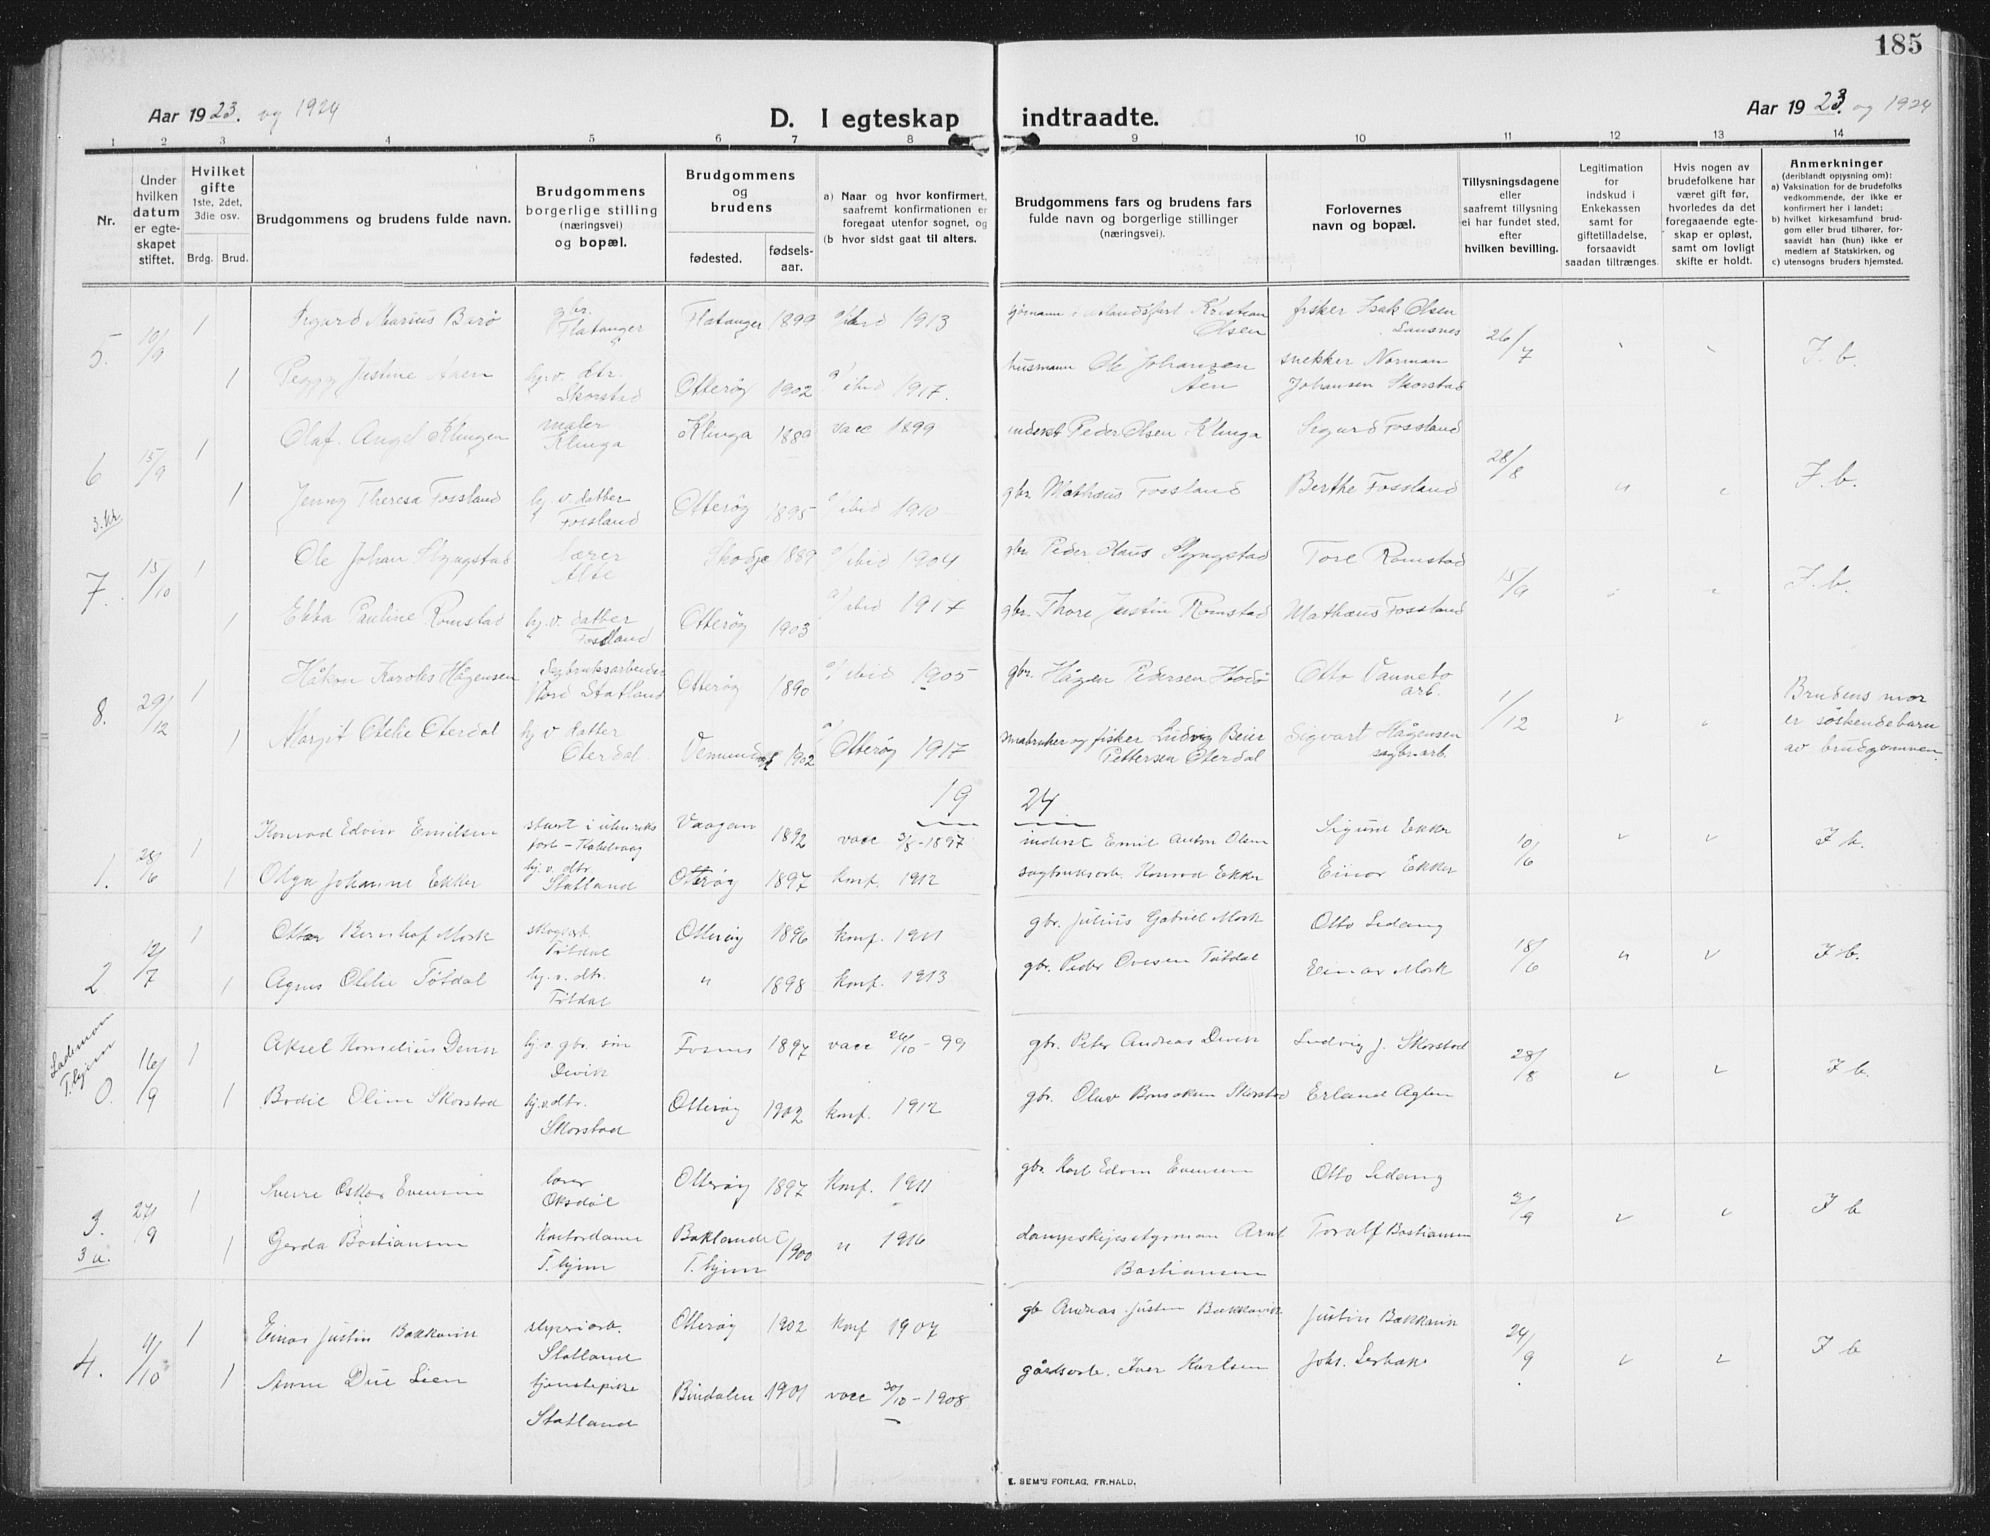 185
Aar 1923. og 1924
D. I egteskap indtraadte.
Aar 1923. og 1924
1 2 3 4 5 6 7 8 9 10 11 12 13 14
Nr.
Under hvilken datum er egteskapet stiftet.
Hvilket gifte 1ste, 2det, 3die osv. Brdg. Brud.
Brudgommens og brudens fulde navn.
Brudgommens borgerlige stilling (næringsvei) og bopæl.
Brudgommens og brudens fødested. fødselsaar.
a) Naar og hvor konfirmert, saafremt konfirmationen er foregaat utenfor sognet, og (b hvor sidst gaat til alters.
Brudgommens fars og brudens fars fulde navn og borgerlige stillinger (næringsvei).
Forlovernes navn og bopæl.
Tillysningsdagene eller saafremt tillysning ei har fundet sted, efter hvilken bevilling.
Legitimation for indskud i Enkekassen samt for giftetilladelse, forsaavidt saadan tiltrænges.
Hvis nogen av brudefolkene har været gift før, hvorledes da det foregaaende egteskap er opløst, samt om lovligt skifte er holdt.
Anmerkninger (deriblandt opjysning om): a) Vaksination for de brudefolks vedkommende, der ikke er konfirmert her i landet; b) hvilket kirkesamfund brudgom eller brud tilhører, forsaavidt han (hun) ikke er medlem af Statskirken, og c) utensogns bruders hjemsted.
5. 10/9 1 Sigurd Marius Berø gbr. Flatanger Flatanger 1899 1913 Kristian Olsen fisker Isak Olsen Lausnes 26/7 F. b.
1 Peggy Justine Aaen hj. v. dtr. Skorstad Otterøy 1902 ibid 1917. husmann Ole Johansen Aen snekker Norman Johansen Skorstad
6 15/9 1 Olaf Angel Klingen maler Klinga Klinga 1889 vacc 1899 inderst Peder Olsen Klinga Sigurd Fossland 28/8 F. b.
1 Jenny Theresa Fossland hj. v. datter Fossland Otterøy 1895 ibid 1910 gbr. Mathæus Fossland Berthe Fossland
3. kr.
7. 15/10 1 Ole Johan Slyngstad lærer Skodje 1889 ibid 1904 gbr. Peder Claus Slyngstad Tore Romstad 15/9 F. b.
1 Ebba Pauline Romstad hj. v. datter Fossland Otterøy 1903 ibid 1917 gbr. Thore Justin Romstad Mathæus Fossland
8. 29/12 1 Håkon Karolis Hågensen Sagbruksarbeider Nord Statland Otterøy 1890 ibid 1905 gbr. Hågen Pedersen Hodø Otto Vannebo arb. 1/12 Brudens mor er søskendebarn av brudgommen.
1 Margit Otelie Oterdal hj. v. datter Oterdal Vemundvik 1902 Otterøy 1917 småbruker og fisker Ludvig Beier Pettersen Oterdal Sigvart Hågensen sagbr.arb.
19 24.
1. 28/6 1 Konrad Edvin Emilsen stuert i utenriksfart - Kabelvaag Vaagan 1892 vacc 3/8 - 1897 inderst Emil Anton Olsen Sigurd Ekker 10/6 F b.
1 Olga Johanne Ekker hj. v. dtr. Statland Otterøy 1897 konf. 1912 sagbruksarb. Konrad Ekker Einar Ekker
2 12/7 1 Ottar Bernhof Mork skogsarb. Tøtdal Otterøy 1896 konf. 1911 gbr. Julius Gabriel Mork Otto Ledang 18/6 F b.
1 Agnes Otelie Tøtdal hj. v. dtr. Tøtdal " 1898 konf. 1913 gbr. Peder Ovesen Tøtdal Einar Mork
Lademoen T.hjem
0. 16/9 1 Aksel Kornelius Devik hj. v. gbr. søn Devik Fosnes 1897 vacc 26/10 - 99 gbr. Peter Andreas Devik Ludvig J. Skorstad 28/8 F b.
1 Bodil Oline Skorstad hj. v. dtr. Skorstad Otterøy 1902 konf. 1912 gbr. Oluv Bonsaksen Skorstad Erland Aglen
3. 27/9 1 Sverre Oskar Evensen lærer Oksdøl Otterøy 1897 konf. 1911 gbr. Karl Edvin Evensen Otto Ledang 3/9 F b
3 a. 1 Gerda Bastiansen kontordame T.hjem Baklandet T.hjem 1900 " 1916 dampskipsstyrman Arnt Bastiansen Toralf Bastiansen
4. 11/10 1 Einar Justin Bakkavik sliperiarb. Statland Otterøy 1902 konf 1907 gb Andreas Justin Bakkavik Justin Bakkavik 24/9 F b
1 Anna Due Lien tjenestepike Statland Bindalen 1901 vacc 30/10 - 1908 gårdsarb. Iver Karlsen Johs. Lerbak
E. SEM'S FORLAG, FR.HALD.